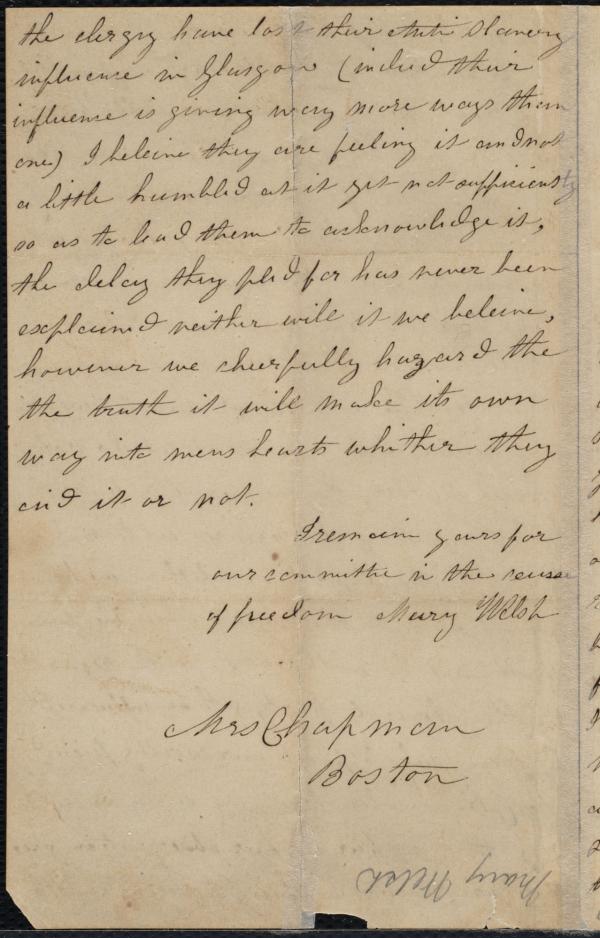 the clergy have lost their Anti Slavery
influence in Glasgow (indeed their
influence is giving way more ways than
one) I beleive they are feeling it and not
a little humbled at it yet not sufficiently
so as to lead them to acknowledge it,
the delay they pled for has never been
explained neither will it we beleive,
however we cheerfully hazard the
the truth it will make its own
way into mens hearts whither they
aid it or not.
I remain yours for
our committee in the cause
of freedom Mary Welsh
Mrs Chapman
Boston
Mary Welsh